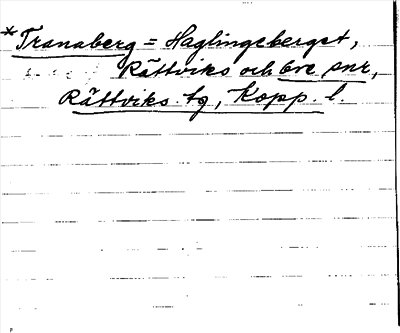 *Tranaberg = Haglingsberget,
Rättviks och Ore snr,
Rättviks tg, Kopp. l.